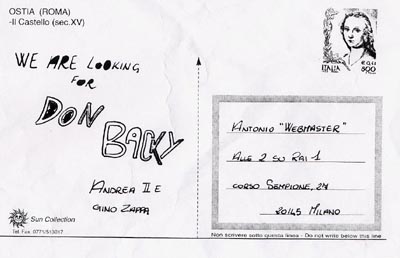 OSTIA (ROMA)
-Il Castello (sec.XV)
WE ARE LOOKING
FOR
DON
BACKY
ANDREA II E
GINO ZAPPA
Sun Collection
Tel. Fax. 0771/513017
ITALIA
500
ANTONIO "WEBMASTER"
ALLE 2 SU RAI 1
CORSO SEMPIONE, 27
20145 MILANO
Non scrivere sotto questa linea - Do not write below this line